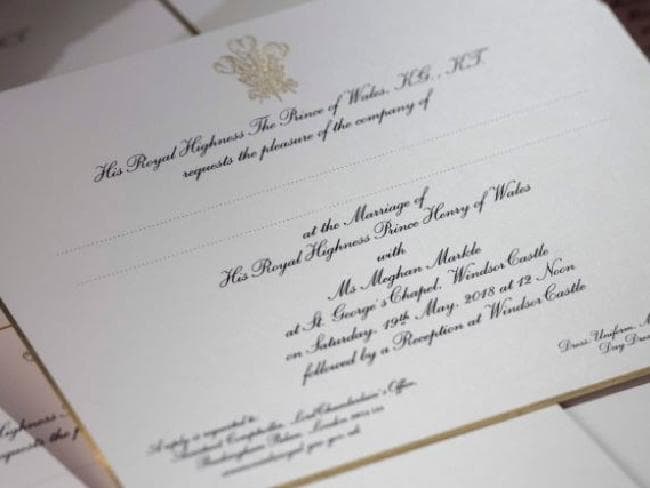 His Royal Highness The Prince of Wales, KG., KT.
requests the pleasure of the company of
at the Marriage of
His Royal Highness Prince Henry of Wales
with
Ms Meghan Markle
at St. George's Chapel, Windsor Castle
on Saturday, 19th May, 2018 at 12 Noon
followed by a Reception at Windsor Castle
Dress: Uniform, M
Day Dres
A reply is requested to:
Assistant Comptroller, Lord Chamberlain's Office,
Buckingham Palace, London
Highness
quests the p